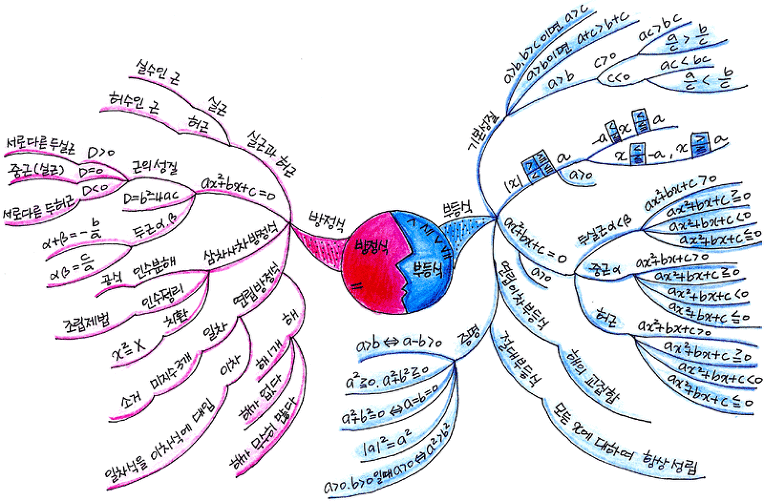 방정식
=
부등식
< > ≤ ≥
방정식
실근과 허근
실근
실수인 근
허근
허수인 근
ax²+bx+c=0
근의 성질
D>0
서로다른 두실근
D=0
중근(실근)
D<0
서로다른 두허근
D=b²-4ac
두근 α, β
α+β=-b/a
αβ=c/a
삼차사차방정식
인수분해
공식
인수정리
조립제법
치환
x²=X
연립방정식
일차
미지수 3개
소거
이차
일차식을 이차식에 대입
해
해 1개
해가 없다
해가 무수히 많다
부등식
기본성질
a>b, b>c이면 a>c
a>b이면 a+c>b+c
a>b
c>0
ac>bc
a/c > b/c
c<0
ac<bc
a/c < b/c
a>0
ax²+bx+c=0
a>0
두실근 α<β
ax²+bx+c>0
ax²+bx+c≧0
ax²+bx+c<0
ax²+bx+c≦0
중근 α
ax²+bx+c>0
ax²+bx+c≧0
ax²+bx+c<0
ax²+bx+c≦0
허근
ax²+bx+c>0
ax²+bx+c≧0
ax²+bx+c<0
ax²+bx+c≦0
연립이차부등식
해의 교집합
절대부등식
모든 x에 대하여 항상 성립
증명
a>b ⇔ a-b>0
a²≧0, a²+b²≧0
a²+b²=0 ⇔ a=b=0
|a|²=a²
a>0, b>0일때 a>b ⇔ a²>b²